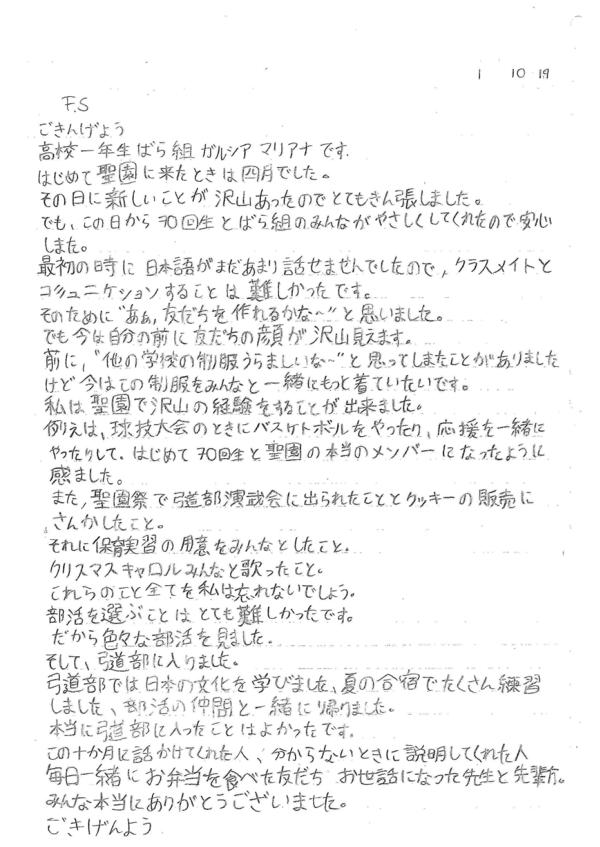 1 10 19
F.S
ごきんげよう
高校一年生ばら組 ガルシア マリアナです.
はじめて聖園に来たときは四月でした。
その日に新しいことが沢山あったのでとてもきん張しました。
でも、この日から70回生とばら組のみんながやさしくしてくれたので安心
しまた。
最初の時に日本語がまだあまり話せませんでしたので, クラスメイトと
コミュニケションすることは難しかったです。
そのために"あぁ,友だちを作れるかな〜"と思いました。
でも今は自分の前に友だちの顔が沢山見えます。
前に,"他の学校の制服うらましいな〜"と思ってしまたことがありました
けど今はこの制服をみんなと一緒にもっと着ていたいです。
私は聖園で沢山の経験をすることが出来ました。
例えは、球技大会のときにバスケトボルをやったり、応援を一緒に
やったりして、はじめて70回生と聖園の本当のメンバーになったように
感ました。
また,聖園祭で弓道部演武会に出られたこととクッキーの販売に
さんかしたこと。
それに保育実習の用意をみんなとしたこと.
クリスマスキャロルみんなと歌ったこと。
これらのこと全てを私は忘れないでしょう。
部活を選ぶことはとても難しかったです。
だから色々な部活を見ました.
そして、弓道部に入りました。
弓道部では日本の文化を学びました、夏の合宿でたくさん練習
しました、部活の仲間と一緒に帰りました。
本当に弓道部に入ったことはよかったです。
この十か月に話かけてくれた人、分からないときに説明してくれた人
毎日一緒にお弁当を食べた友だち お世話になった先生と先輩方。
みんな本当にありがとうございました。
ごきげんよう